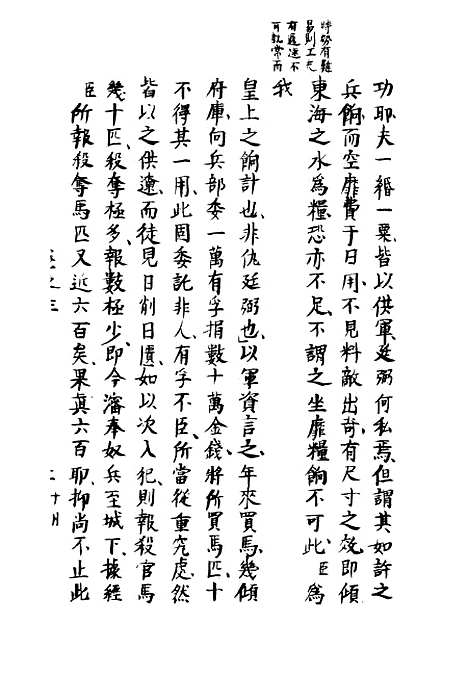 時勢有難
易則工尤
有遲速不
可執常而
功耶夫一緡一粟皆以供軍廷弼何私焉但謂其如許之
兵餉而空靡費于日用不見料敵出奇有尺寸之效即傾
東海之水爲糧恐亦不足不謂之坐靡糧餉不可此臣爲
我
皇上之餉計也非仇廷弼也以軍資言之年來買馬幾傾
府庫向兵部委一萬有孚捐數十萬金錢將所買馬匹十
不得其一用此固委託非人有孚不臣所當從重究處然
皆以之供遼而徒見日削日隕如以次入犯則報殺官馬
幾十匹殺奪極多報數極少即今瀋奉奴兵至城下據經
臣所報殺奪馬匹又近六百矣果真六百耶抑尚不止此
卷之三
二十月